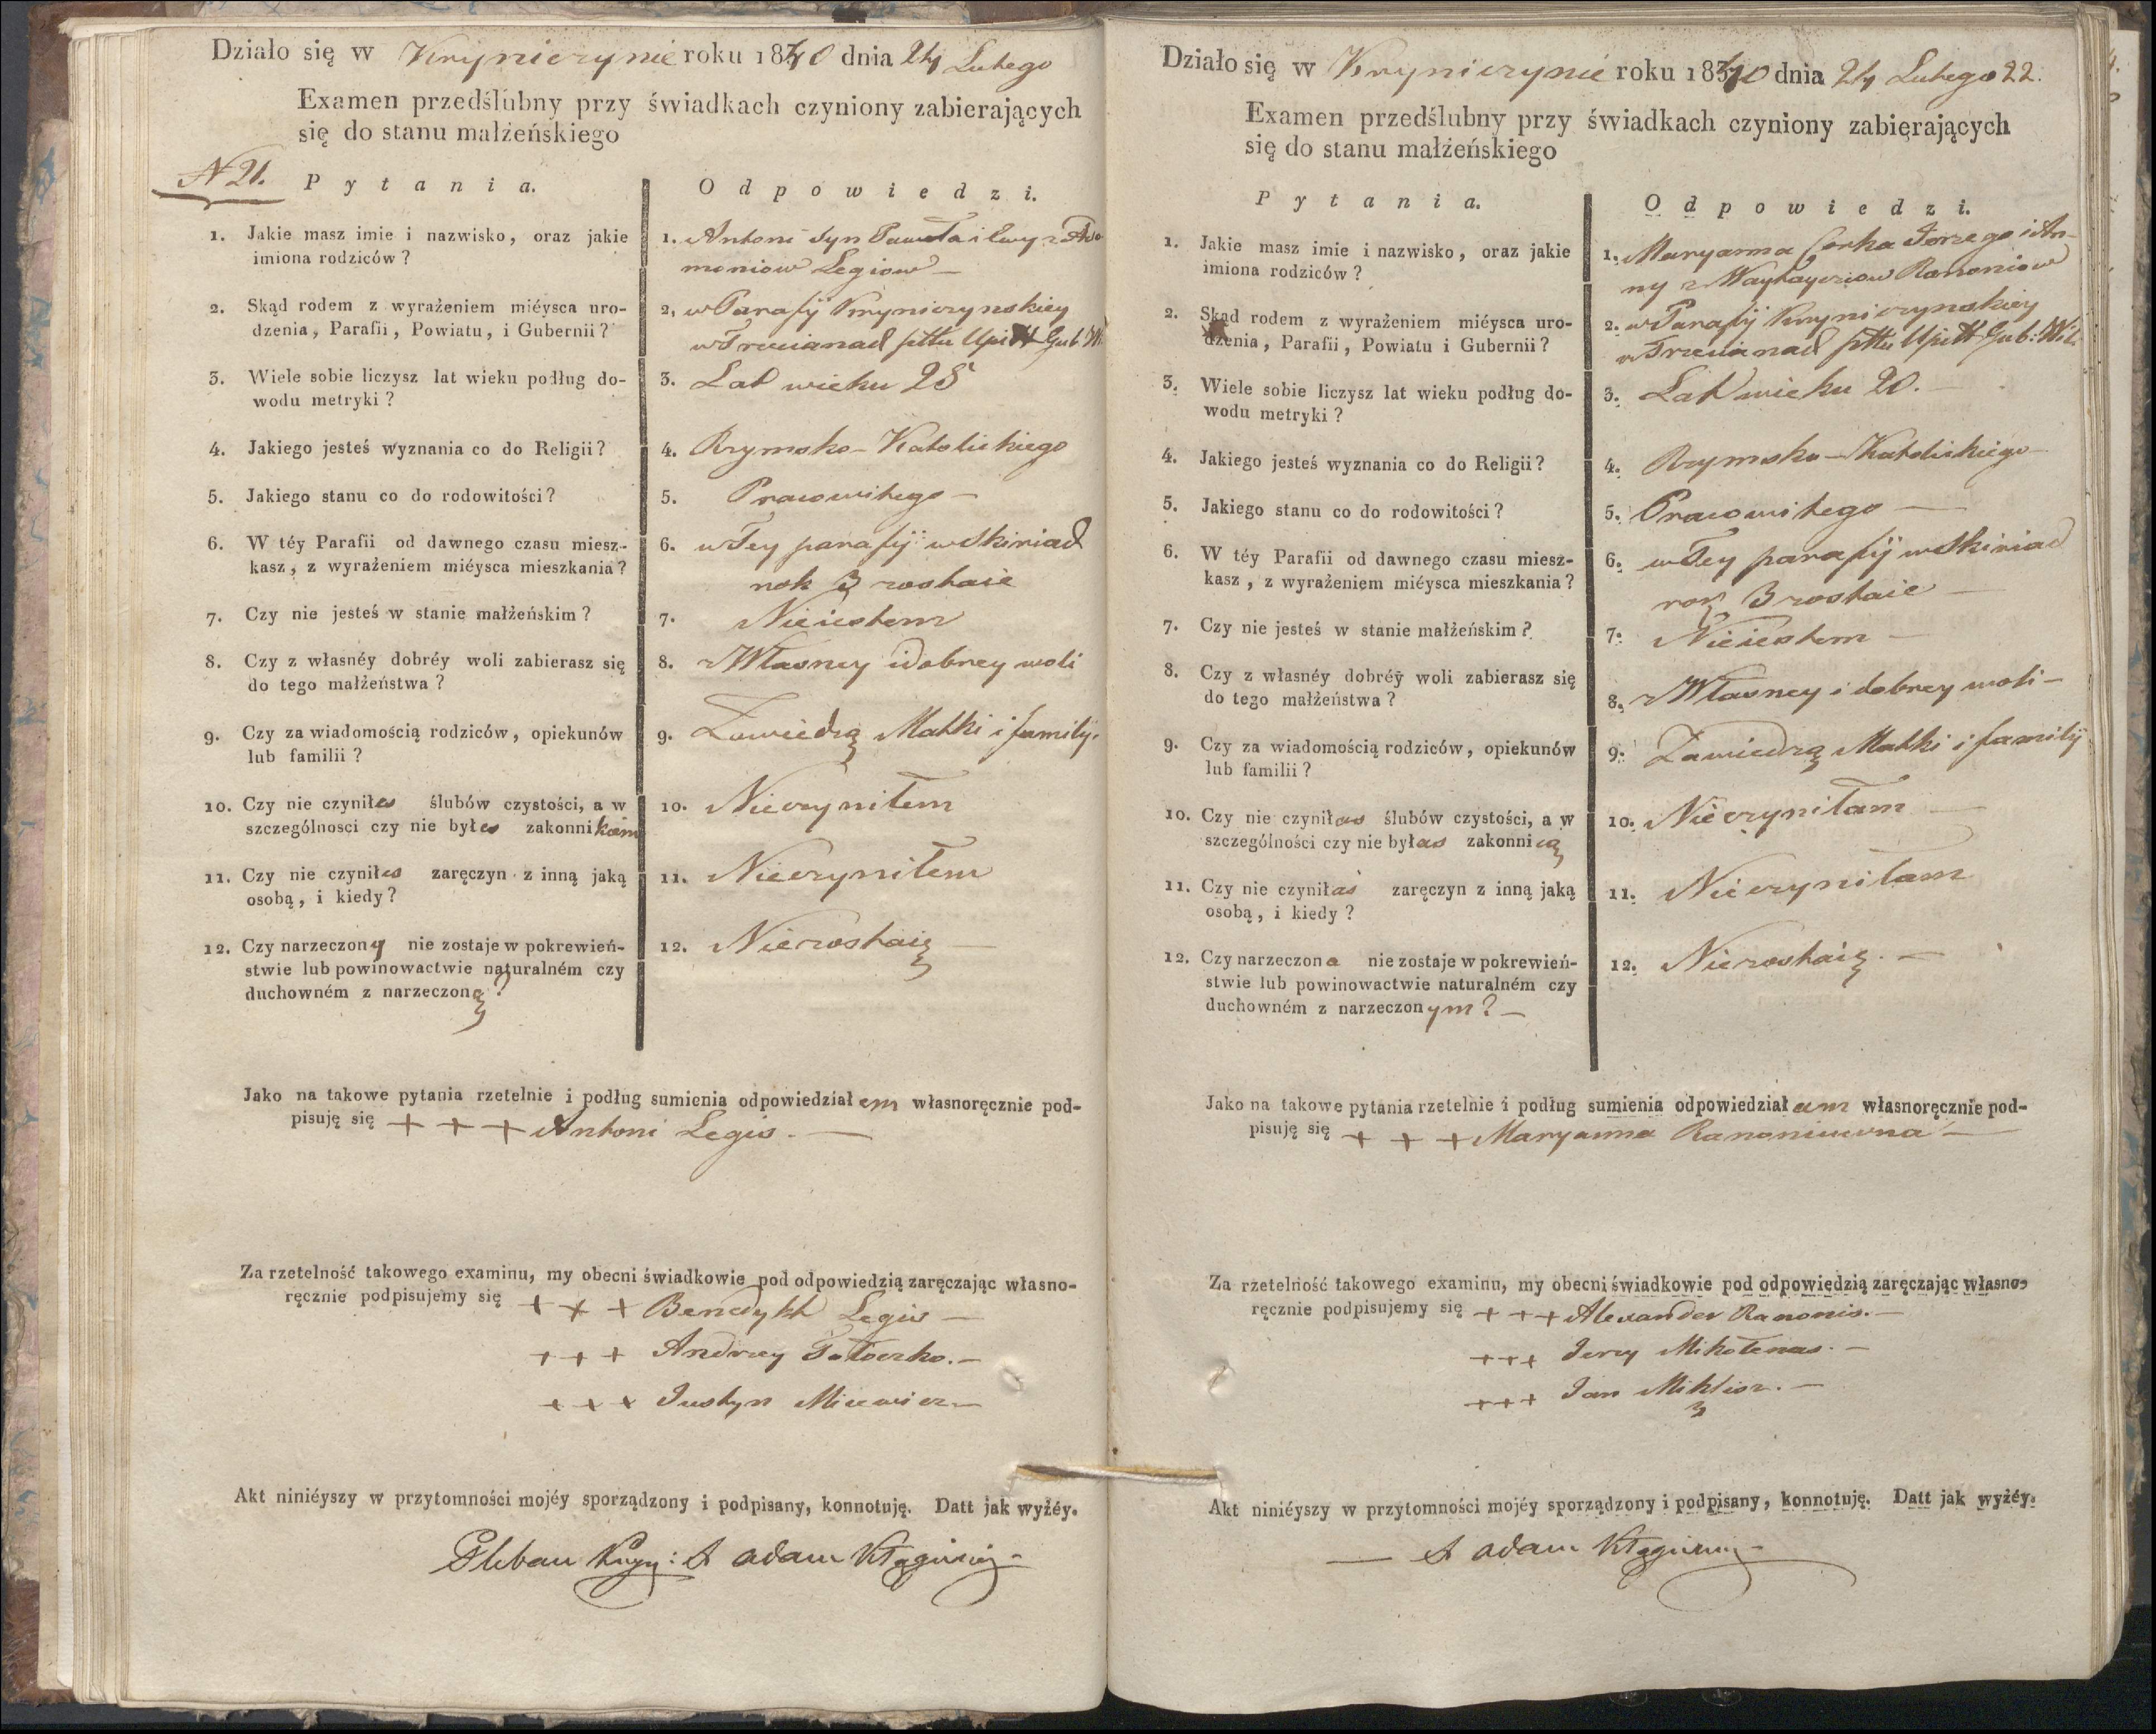 Działo się w Kryniczynie roku 1840 dnia 24 Lutego
Examen przedślubny przy świadkach czyniony zabierających
się do stanu małżeńskiego
N 21.
Pytania.
Odpowiedzi.
1. Jakie masz imie i nazwisko, oraz jakie
imiona rodziców?
1. Antoni Syn Pawła i Ewy z
moniow Legiow —
2. Skąd rodem z wyrażeniem miéysca uro-
dzenia, Parafii, Powiatu, i Gubernii?
2. w Parafij Kryniczynskiey
w Trecianad pttu Upitt Gub: W
3. Wiele sobie liczysz lat wieku podług do-
wodu metryki?
3. Lat wieku 28
4. Jakiego jesteś wyznania co do Religii?
4. Rzymsko-Katolickiego
5. Jakiego stanu co do rodowitości?
5. Pracowitego —
6. W téy Parafii od dawnego czasu miesz-
kasz, z wyrażeniem miéysca mieszkania?
6. w Tey parafij w Skiriad
rok 3 zostaie
7. Czy nie jesteś w stanie małżeńskim?
7. Nieiestem
8. Czy z własnéy dobréy woli zabierasz się
do tego małżeństwa?
8. z Własney i dobrey woli
9. Czy za wiadomością rodziców, opiekunów
lub familii?
9. Zawiedzą Matki i familij.
10. Czy nie czyniłes ślubów czystości, a w
szczególnosci czy nie byłes zakonnikiem
10. Nieczyniłem
11. Czy nie czyniłes zaręczyn z inną jaką
osobą, i kiedy?
11. Nieczyniłem
12. Czy narzeczony nie zostaje w pokrewień-
stwie lub powinowactwie naturalném czy
duchowném z narzeczoną?
12. Niezostaię —
Jako na takowe pytania rzetelnie i podług sumienia odpowiedział em własnoręcznie pod-
pisuję się + + + Antoni Legis. —
Za rzetelność takowego examinu, my obecni świadkowie pod odpowiedzią zaręczając własno-
ręcznie podpisujemy się + + + Benedykt Legis —
+ + + Andrzey Tołoczko. —
+ + + Justyn Micewicz —
Akt niniéyszy w przytomności mojéy sporządzony i podpisany, konnotuję. Datt jak wyżéy.
Pleban Kryn: X Adam
Działo się w Kryniczynie roku 1840 dnia 24 Lutego 22.
Examen przedślubny przy świadkach czyniony zabierających
się do stanu małżeńskiego
Pytania.
Odpowiedzi.
1. Jakie masz imie i nazwisko, oraz jakie
imiona rodziców?
1. Maryanna Corka Jorzego i An-
ny z Waytayciow Ranoniow
2. Skąd rodem z wyrażeniem miéysca uro-
dzenia, Parafii, Powiatu i Gubernii?
2. w Parafij Kryniczynskiey
w Trecianad pttu Upitt Gub: Wil:
3. Wiele sobie liczysz lat wieku podług do-
wodu metryki?
3. Lat wieku 20. —
4. Jakiego jesteś wyznania co do Religii?
4. Rzymsko-Katolickiego —
5. Jakiego stanu co do rodowitości?
5. Pracowitego —
6. W téy Parafii od dawnego czasu miesz-
kasz, z wyrażeniem miéysca mieszkania?
6. w Tey parafij w Skiriad
rok 3 zostaie —
7. Czy nie jesteś w stanie małżeńskim?
7. Nieiestem —
8. Czy z własnéy dobréy woli zabierasz się
do tego małżeństwa?
8. z Własney i dobrey woli —
9. Czy za wiadomością rodziców, opiekunów
lub familii?
9. Zawiedzą Matki i familij
10. Czy nie czyniłas ślubów czystości, a w
szczególności czy nie byłas zakonnicą
10. Nieczyniłam —
11. Czy nie czyniłaś zaręczyn z inną jaką
osobą, i kiedy?
11. Nieczyniłam
12. Czy narzeczona nie zostaje w pokrewień-
stwie lub powinowactwie naturalném czy
duchowném z narzeczonym? —
12. Niezostaię. —
Jako na takowe pytania rzetelnie i podług sumienia odpowiedział am własnoręcznie pod-
pisuję się + + + Maryanna Ranoniuwna —
Za rzetelność takowego examinu, my obecni świadkowie pod odpowiedzią zaręczając własno-
ręcznie podpisujemy się + + + Alexander Ranonis. —
+ + + Jerzy Mikołenas. —
+ + + Jan Miklisz. —
Akt niniéyszy w przytomności mojéy sporządzony i podpisany, konnotuję. Datt jak wyżéy.
— X Adam